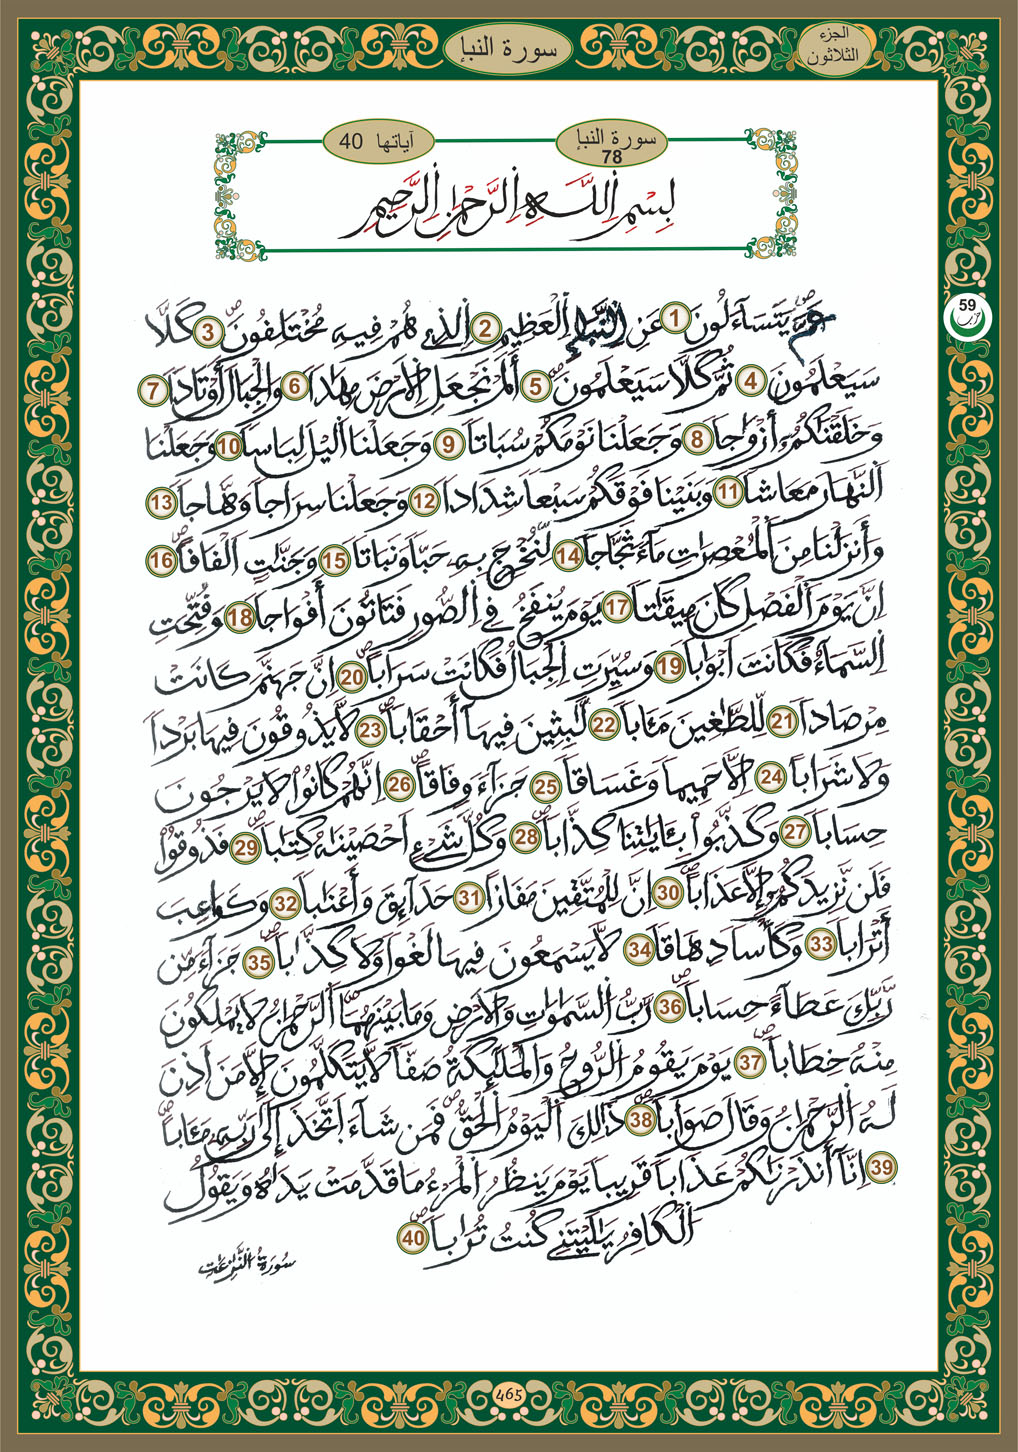 الجزء
الثلاثون
سورة النبإ
سورة النبإ
78
آياتها 40
بِسْمِ اِ۬للَّهِ اِ۬لرَّحْمَٰنِ اِ۬لرَّحِيمِ
59
حزب
عَمَّ يَتَسَآءَلُونَ 1 عَنِ اِ۬لنَّبَإِ اِ۬لْعَظِيمِ 2 اِ۬لذِے هُمْ فِيهِ مُخْتَلِفُونَ 3 كَلَّا
سَيَعْلَمُونَ 4 ثُمَّ كَلَّا سَيَعْلَمُونَ 5 أَلَمْ نَجْعَلِ اِ۬لْأَرْضَ مِهَٰداٗ 6 وَالْجِبَالَ أَوْتَاداٗ 7
وَخَلَقْنَٰكُمُۥٓ أَزْوَٰجاٗ 8 وَجَعَلْنَا نَوْمَكُمْ سُبَاتاٗ 9 وَجَعَلْنَا اَ۬ليْلَ لِبَاساٗ 10 وَجَعَلْنَا
اَ۬لنَّهَارَ مَعَاشاٗ 11 وَبَنَيْنَا فَوْقَكُمْ سَبْعاٗ شِدَاداٗ 12 وَجَعَلْنَا سِرَاجاٗ وَهَّاجاٗ 13
وَأَنزَلْنَا مِنَ اَ۬لْمُعْصِرَٰتِ مَآءٗ ثَجَّاجاٗ 14 لِّنُخْرِجَ بِهِۦ حَبّاٗ وَنَبَاتاٗ 15 وَجَنَّٰتٍ اَلْفَافاً 16
اِنَّ يَوْمَ اَ۬لْفَصْلِ كَانَ مِيقَٰتاٗ 17 يَوْمَ يُنفَخُ فِے اِ۬لصُّورِ فَتَاتُونَ أَفْوَاجاٗ 18 وَفُتِّحَتِ
اِ۬لسَّمَآءُ فَكَانَتَ اَبْوَٰباٗ 19 وَسُيِّرَتِ اِ۬لْجِبَالُ فَكَانَتْ سَرَاباً 20 اِنَّ جَهَنَّمَ كَانَتْ
مِرْصَاداٗ 21 لِّلطَّٰغِينَ مَـَٔاباٗ 22 لَّٰبِثِينَ فِيهَآ أَحْقَاباٗ 23 لَّا يَذُوقُونَ فِيهَا بَرْداٗ
وَلَا شَرَاباً 24 اِلَّا حَمِيماٗ وَغَسَاقاٗ 25 جَزَآءٗ وِفَاقاً 26 اِنَّهُمْ كَانُواْ لَا يَرْجُونَ
حِسَاباٗ 27 وَكَذَّبُواْ بِـَٔايَٰتِنَا كِذَّاباٗ 28 وَكُلَّ شَےْءٍ اَحْصَيْنَٰهُ كِتَٰباٗ 29 فَذُوقُواْ
فَلَن نَّزِيدَكُمُۥٓ إِلَّا عَذَاباً 30 اِنَّ لِلْمُتَّقِينَ مَفَازاً 31 حَدَآئِقَ وَأَعْنَٰباٗ 32 وَكَوَاعِبَ
أَتْرَاباٗ 33 وَكَأْساٗ دِهَاقاٗ 34 لَّا يَسْمَعُونَ فِيهَا لَغْواٗ وَلَا كِذَّٰباٗ 35 جَزَآءٗ مِّن
رَّبِّكَ عَطَآءً حِسَاباٗ 36 رَّبُّ اُ۬لسَّمَٰوَٰتِ وَالْأَرْضِ وَمَا بَيْنَهُمَا اَ۬لرَّحْمَٰنُ لَا يَمْلِكُونَ
مِنْهُ خِطَاباٗ 37 يَوْمَ يَقُومُ اُ۬لرُّوحُ وَالْمَلَٰٓئِكَةُ صَفّاٗ لَّا يَتَكَلَّمُونَ إِلَّا مَنَ اَذِنَ
لَهُ اُ۬لرَّحْمَٰنُ وَقَالَ صَوَاباٗ 38 ذَٰلِكَ اَ۬لْيَوْمُ اُ۬لْحَقُّ فَمَن شَآءَ اَ۪تَّخَذَ إِلَىٰ رَبِّهِۦ مَـَٔاباً
39 اِنَّآ أَنذَرْنَٰكُمْ عَذَاباٗ قَرِيباٗ يَوْمَ يَنظُرُ اُ۬لْمَرْءُ مَا قَدَّمَتْ يَدَٰهُ وَيَقُولُ
اُ۬لْكَافِرُ يَٰلَيْتَنِے كُنتُ تُرَٰباٗ 40
سُورَةُ النَّٰزِعَٰتِ
465